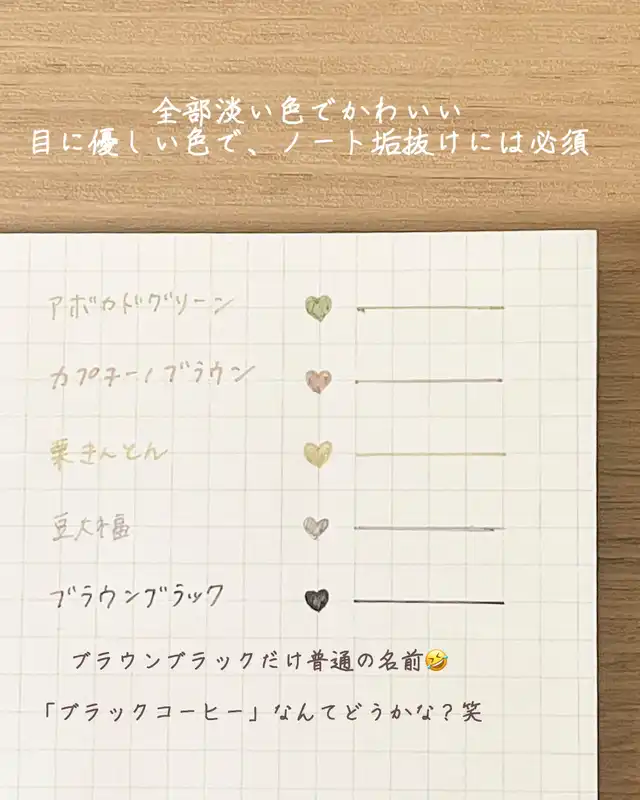 全部淡い色でかわいい
目に優しい色で、ノート垢抜けには必須
アボカドグリーン
カプチーノブラウン
栗きんとん
豆大福
ブラウンブラック
ブラウンブラックだけ普通の名前🤣
「ブラックコーヒー」なんてどうかな？笑